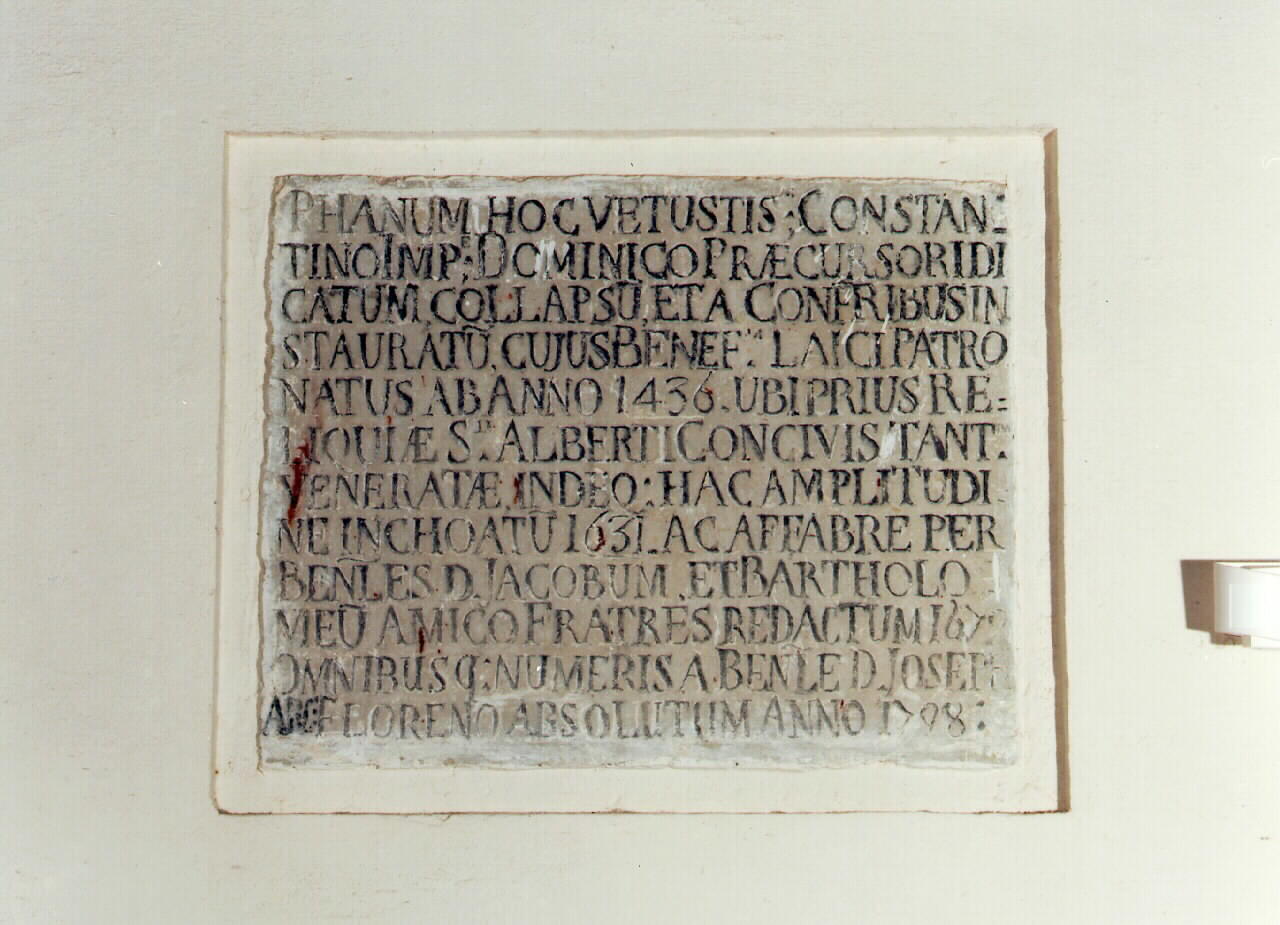 PHANUM HOC VETUSTIS; CONSTAN:
TINO IMP:E DOMINICO PRÆCURSORI DI
CATUM, COLLAPSŪ, ET A CONFRIBUS IN
STAURATŪ, CUJUS BENEF.M LAICI PATRO
NATUS AB ANNO 1436. UBI PRIUS RE:
LIQUIÆ S.TI ALBERTI CONCIVIS TANT.
VENERATÆ, INDEQ: HAC AMPLITUDI
NE INCHOATŪ 1631. AC AFFABRE PER
BEN͠LES. D. JACOBUM, ET BARTHOLO
MEŪ AMICO FRATRES REDACTUM 1679
OMNIBUSQ: NUMERIS A BEN͠LE D. JOSEPH
ABC: FLORENO ABSOLUTUM ANNO 1798: